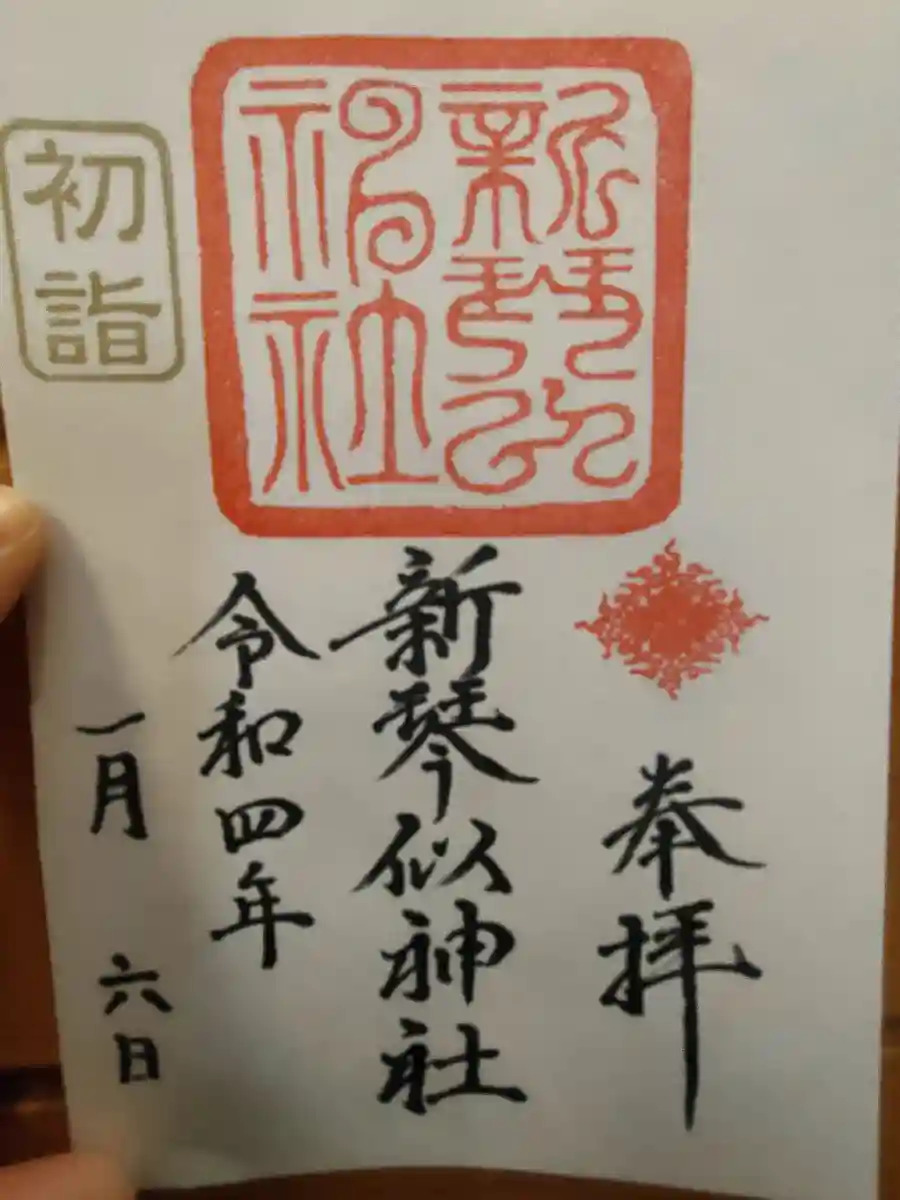 奉拝
新琴似神社
新琴似神社
令和四年
一月 六日
初詣